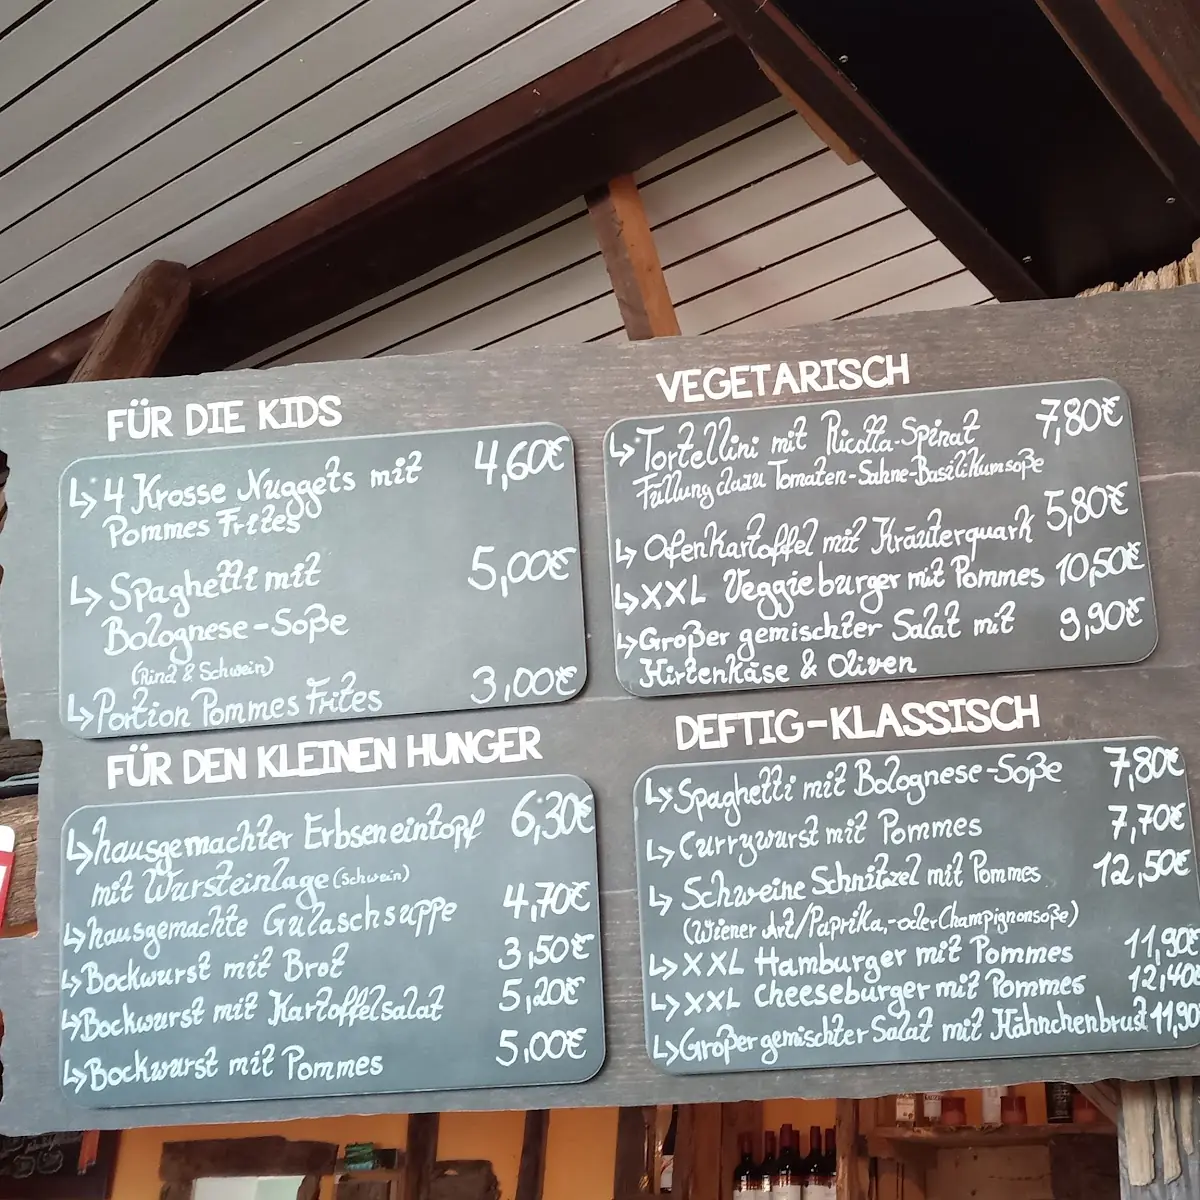 FÜR DIE KIDS
↳ 4 Krosse Nuggets mit 4,60€
Pommes Frites
↳ Spaghetti mit 5,00€
Bolognese-Soße
(Rind & Schwein)
↳ Portion Pommes Frites 3,00€
VEGETARISCH
↳ Tortellini mit Ricotta-Spinat 7,80€
Füllung dazu Tomaten-Sahne-Basilikumsoße
↳ Ofenkartoffel mit Kräuterquark 5,80€
↳ XXL Veggieburger mit Pommes 10,50€
↳ Großer gemischter Salat mit 9,90€
Hirtenkäse & Oliven
FÜR DEN KLEINEN HUNGER
↳ hausgemachter Erbseneintopf 6,30€
mit Wursteinlage (Schwein)
↳ hausgemachte Gulaschsuppe 4,70€
↳ Bockwurst mit Brot 3,50€
↳ Bockwurst mit Kartoffelsalat 5,20€
↳ Bockwurst mit Pommes 5,00€
DEFTIG-KLASSISCH
↳ Spaghetti mit Bolognese-Soße 7,80€
↳ Currywurst mit Pommes 7,70€
↳ Schweine Schnitzel mit Pommes 12,50€
(Wiener Art/Paprika,-oder Champignonsoße)
↳ XXL Hamburger mit Pommes 11,90€
↳ XXL Cheeseburger mit Pommes 12,40€
↳ Großer gemischter Salat mit Hähnchenbrust 11,90